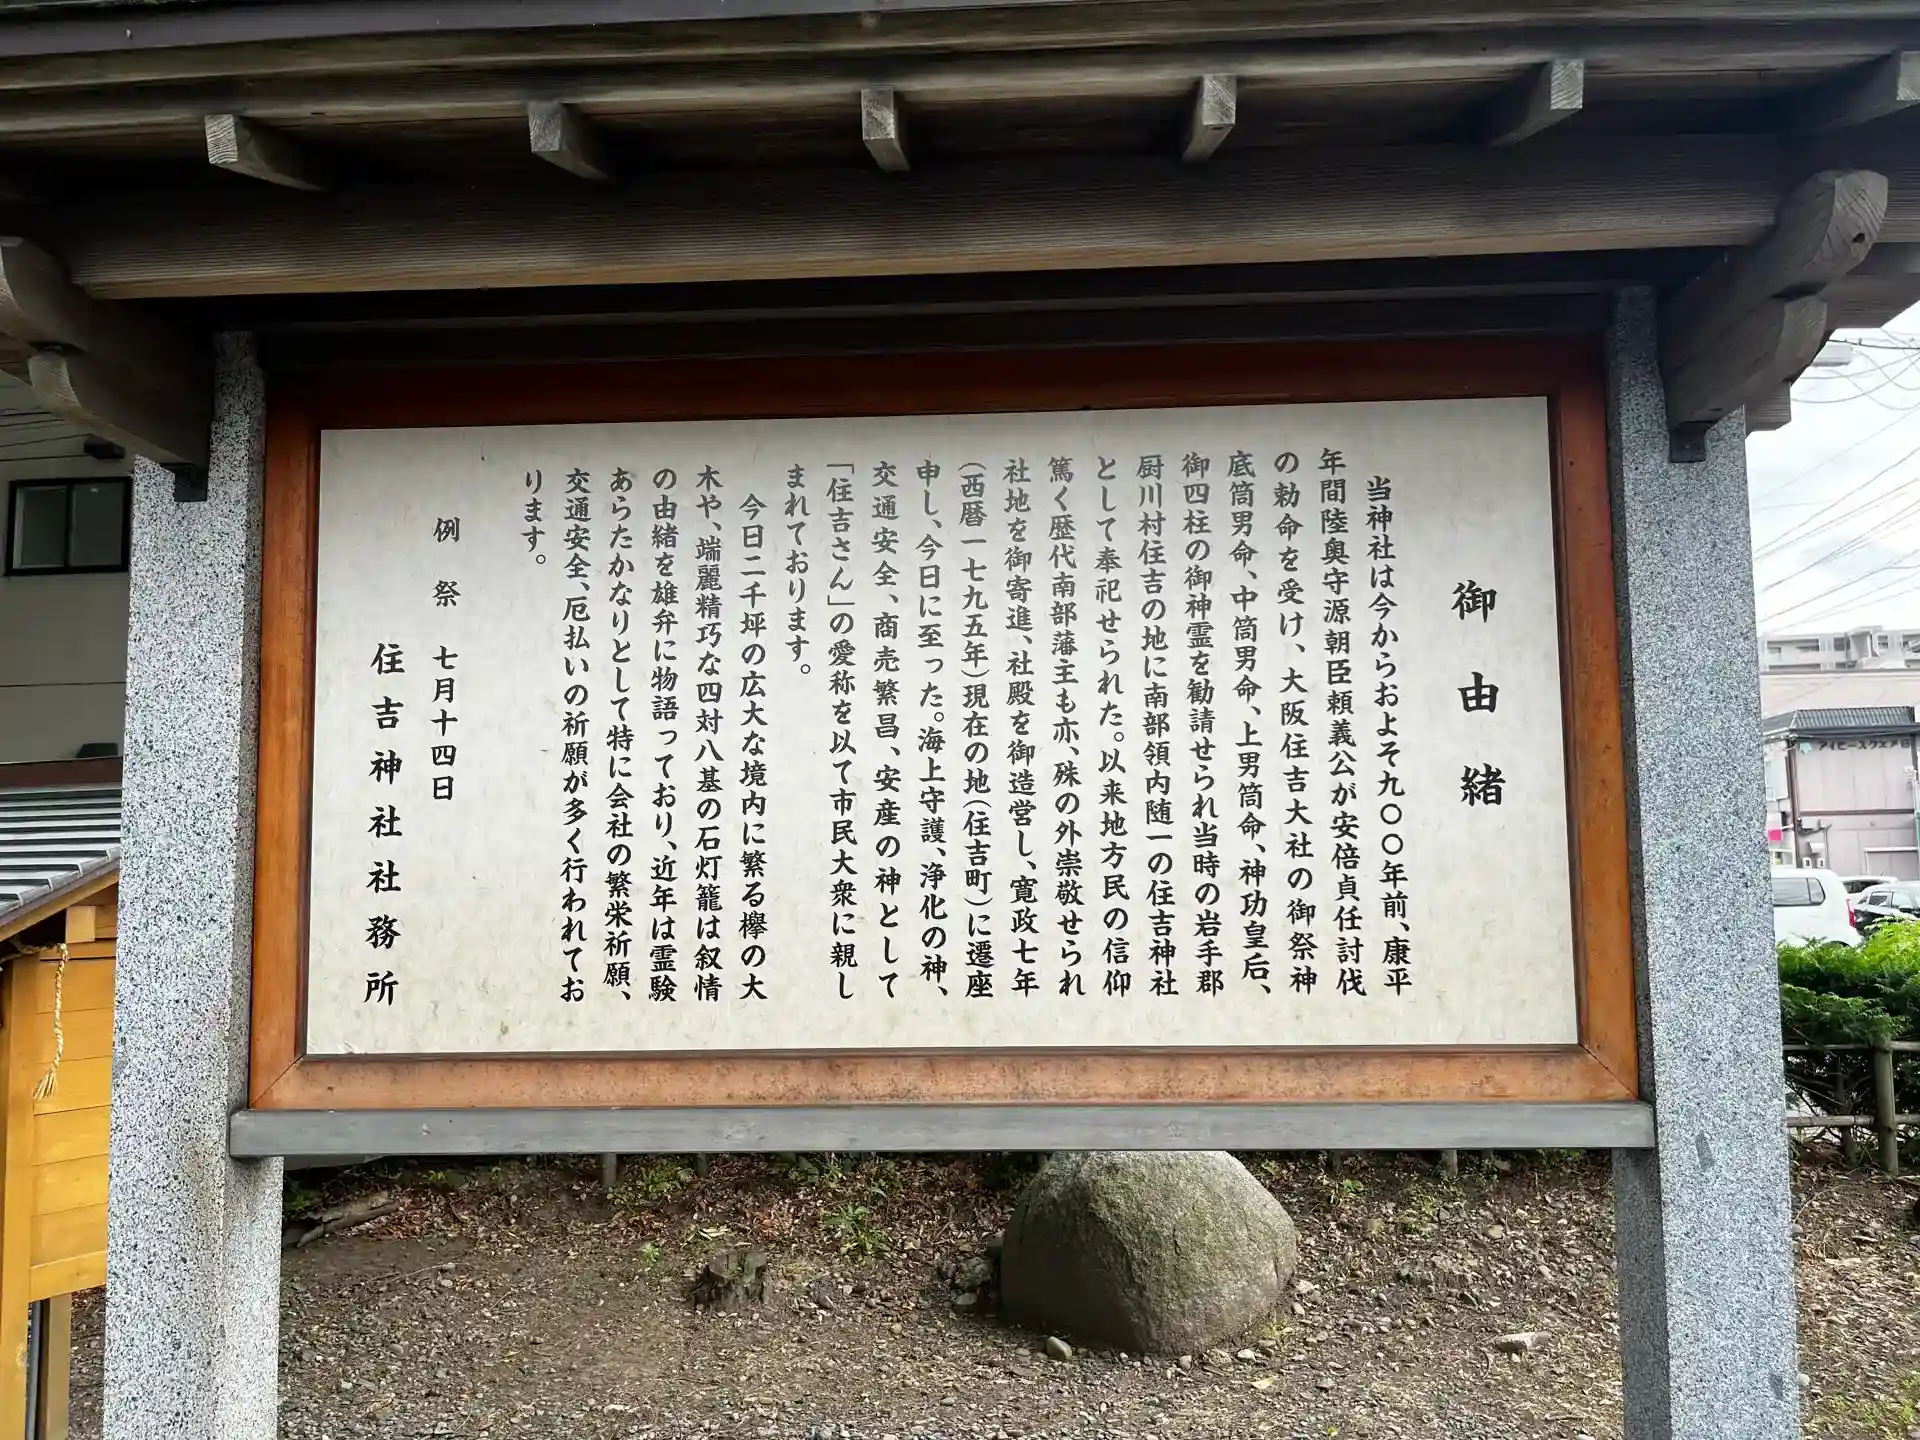 御由緒
当神社は今からおよそ九〇〇年前、康平
年間陸奥守源朝臣頼義公が安倍貞任討伐
の勅命を受け、大阪住吉大社の御祭神
底筒男命、中筒男命、上男筒命、神功皇后、
御四柱の御神霊を勧請せられ当時の岩手郡
厨川村住吉の地に南部領内随一の住吉神社
として奉祀せられた。以来地方民の信仰
篤く歴代南部藩主も亦、殊の外崇敬せられ
社地を御寄進、社殿を御造営し、寛政七年
(西暦一七九五年)現在の地(住吉町)に遷座
申し、今日に至った。海上守護、浄化の神、
交通安全、商売繁昌、安産の神として
「住吉さん」の愛称を以て市民大衆に親し
まれております。
今日二千坪の広大な境内に繁る欅の大
木や、端麗精巧な四対八基の石灯籠は叙情
の由緒を雄弁に物語っており、近年は霊験
あらたかなりとして特に会社の繁栄祈願、
交通安全、厄払いの祈願が多く行われてお
ります。
例祭 七月十四日
住吉神社社務所
アイビースクェア